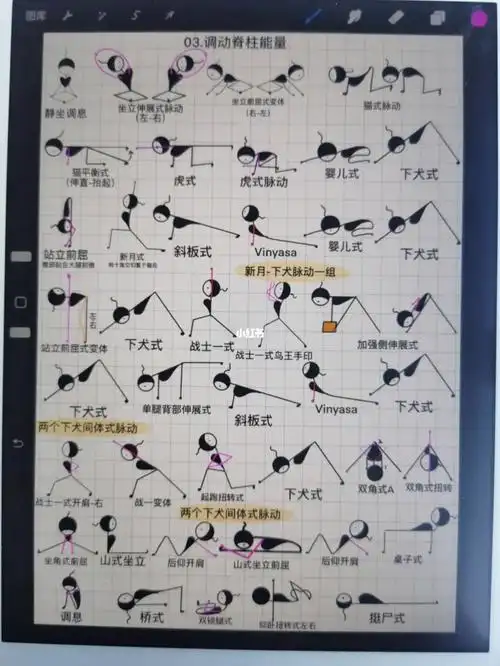 图库
03.调动脊柱能量
静坐调息
坐立伸展式脉动
(左-右)
坐立前屈式变体
(右-左)
猫式脉动
猫平衡式
(伸直-抬起)
虎式
虎式脉动
婴儿式
下犬式
站立前屈
新月式
斜板式
Vinyasa
婴儿式
下犬式
新月-下犬脉动一组
站立前屈式变体
左右
下犬式
战士一式
小红书
战士一式鸟王手印
加强侧伸展式
下犬式
单腿背部伸展式
斜板式
Vinyasa
下犬式
两个下犬间体式脉动
战士一式开肩-右
战一变体
起跑扭转式
下犬式
双角式A
双角式扭转
两个下犬间体式脉动
坐角式前屈
山式坐立
后仰开肩
山式坐立前屈
后仰开肩
桌子式
调息
桥式
双锁腿式
仰卧扭转式左右
挺尸式